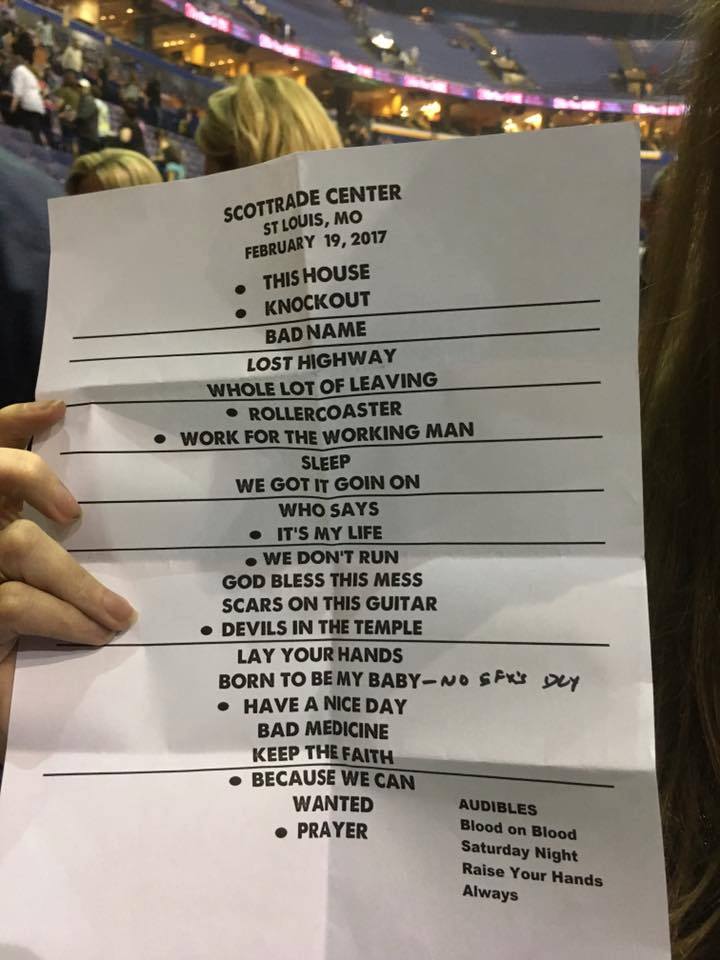 SCOTTRADE CENTER
ST LOUIS, MO
FEBRUARY 19, 2017
• THIS HOUSE
• KNOCKOUT
BAD NAME
LOST HIGHWAY
WHOLE LOT OF LEAVING
• ROLLERCOASTER
• WORK FOR THE WORKING MAN
SLEEP
WE GOT IT GOIN ON
WHO SAYS
• IT'S MY LIFE
• WE DON'T RUN
GOD BLESS THIS MESS
SCARS ON THIS GUITAR
• DEVILS IN THE TEMPLE
LAY YOUR HANDS
BORN TO BE MY BABY - NO
• HAVE A NICE DAY
BAD MEDICINE
KEEP THE FAITH
• BECAUSE WE CAN
WANTED
• PRAYER
AUDIBLES
Blood on Blood
Saturday Night
Raise Your Hands
Always